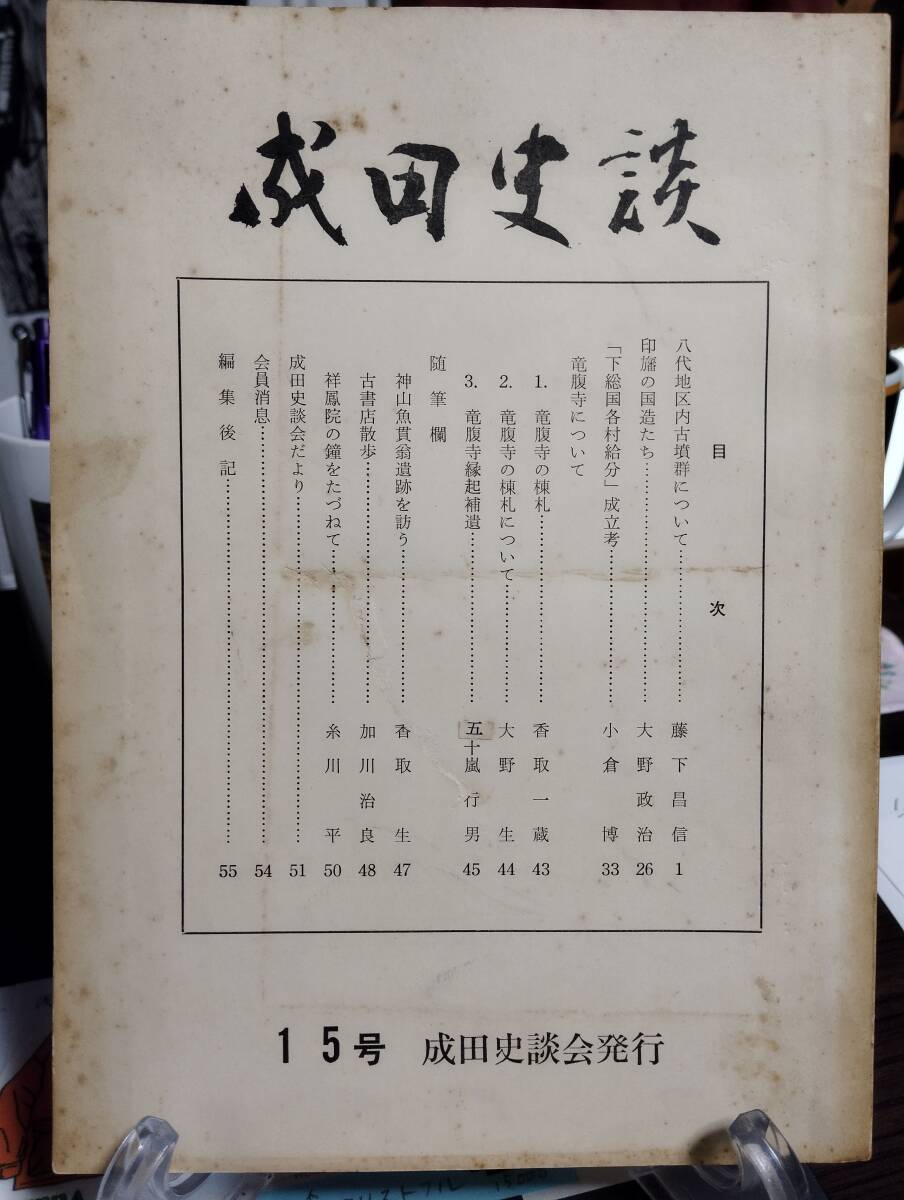 成田史談
目次
八代地区内古墳群について……………………藤下昌信 1
印旛の国造たち……………………大野政治 26
「下総国各村給分」成立考……………………小倉博 33
竜腹寺について
1. 竜腹寺の棟札……………………香取一蔵 43
2. 竜腹寺の棟札について……………………大野生 44
3. 竜腹寺縁起補遺……………………五十嵐行男 45
随筆欄
神山魚貫翁遺跡を訪う……………………香取生 47
古書店散歩……………………加川治良 48
祥鳳院の鐘をたづねて……………………糸川平 50
成田史談会だより……………………51
会員消息……………………54
編集後記……………………55
15号 成田史談会発行